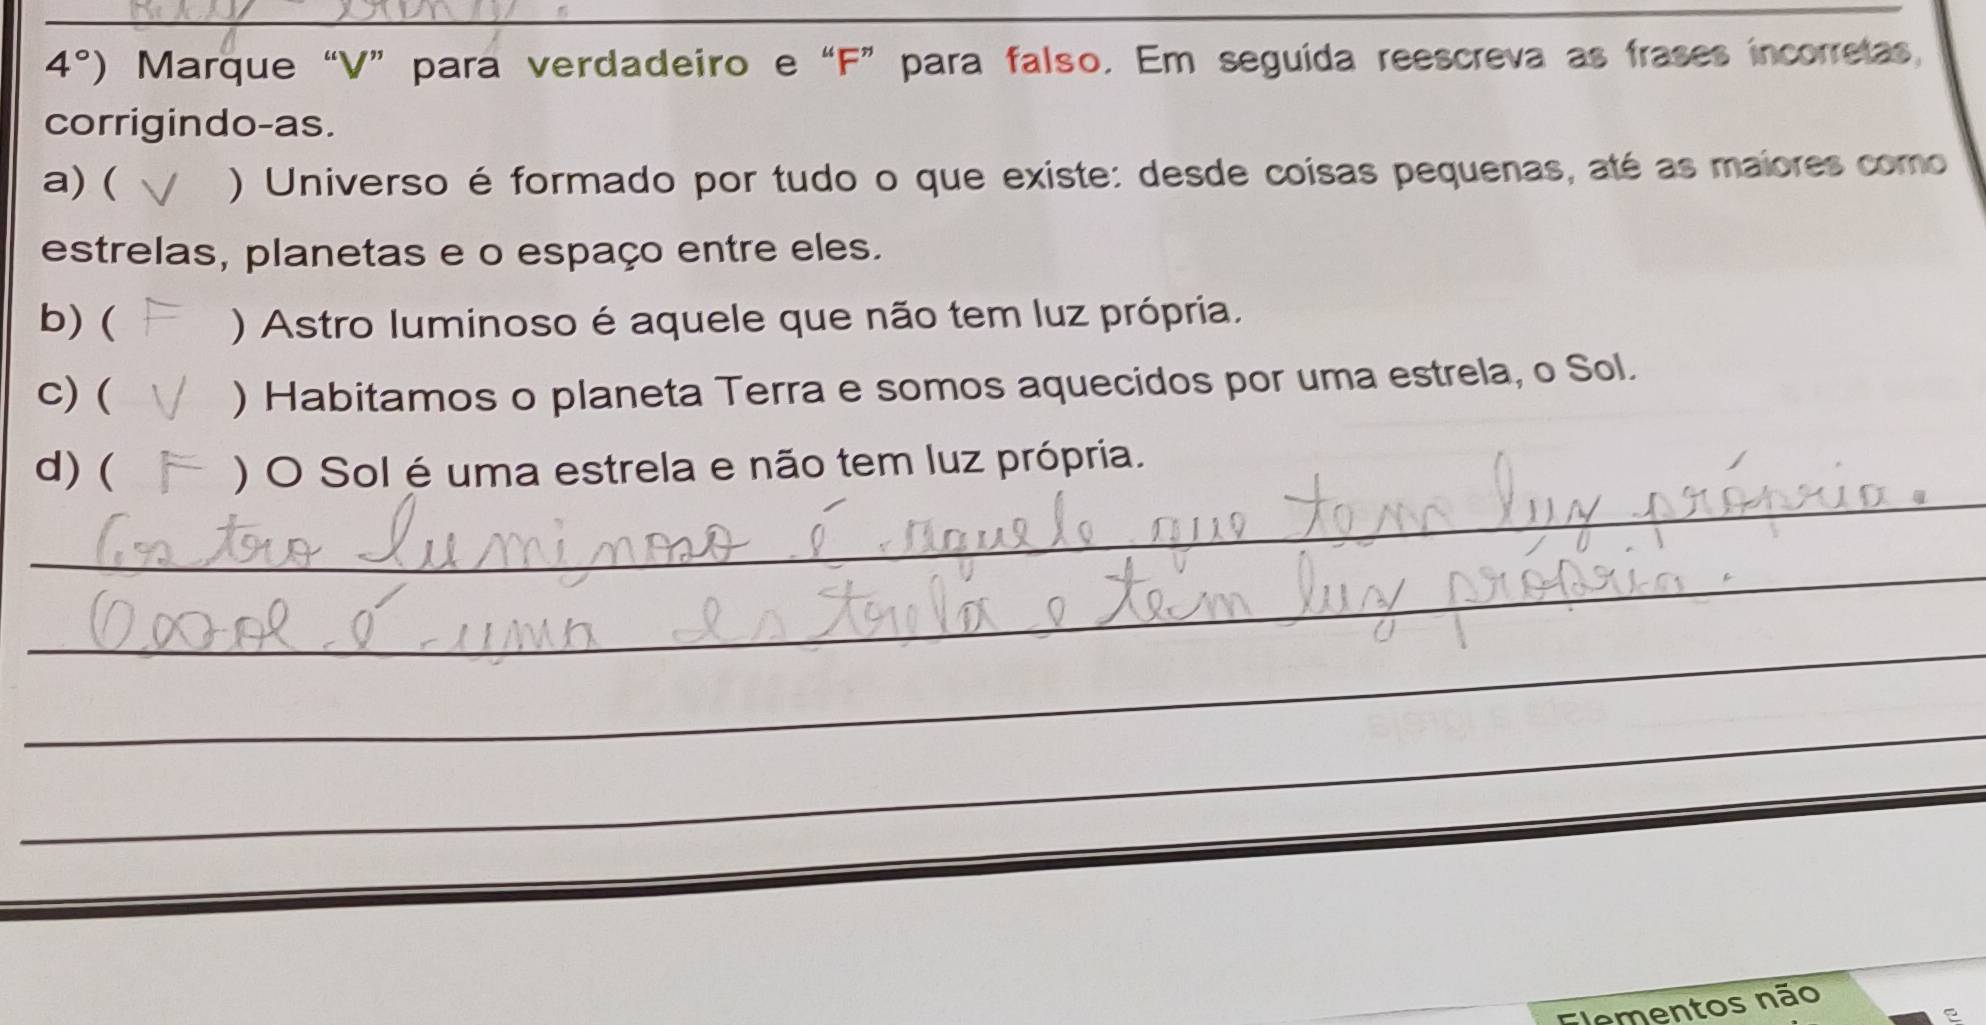 4°) Marque “V” para verdadeiro e “F” para falso. Em seguida reescreva as frases incorretas,
corrigindo-as.
a) ( V ) Universo é formado por tudo o que existe: desde coisas pequenas, até as maiores como
estrelas, planetas e o espaço entre eles.
b) ( F ) Astro luminoso é aquele que não tem luz própria.
c) ( V ) Habitamos o planeta Terra e somos aquecidos por uma estrela, o Sol.
d) ( F ) O Sol é uma estrela e não tem luz própria.
Astro luminoso é aquele que tem luz própria.
é uma estrela e tem luz própria.
Elementos não